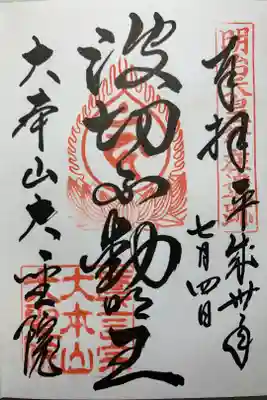 奉拝 平成卅年
七月四日
波切不動明王
大本山大聖院
大本山